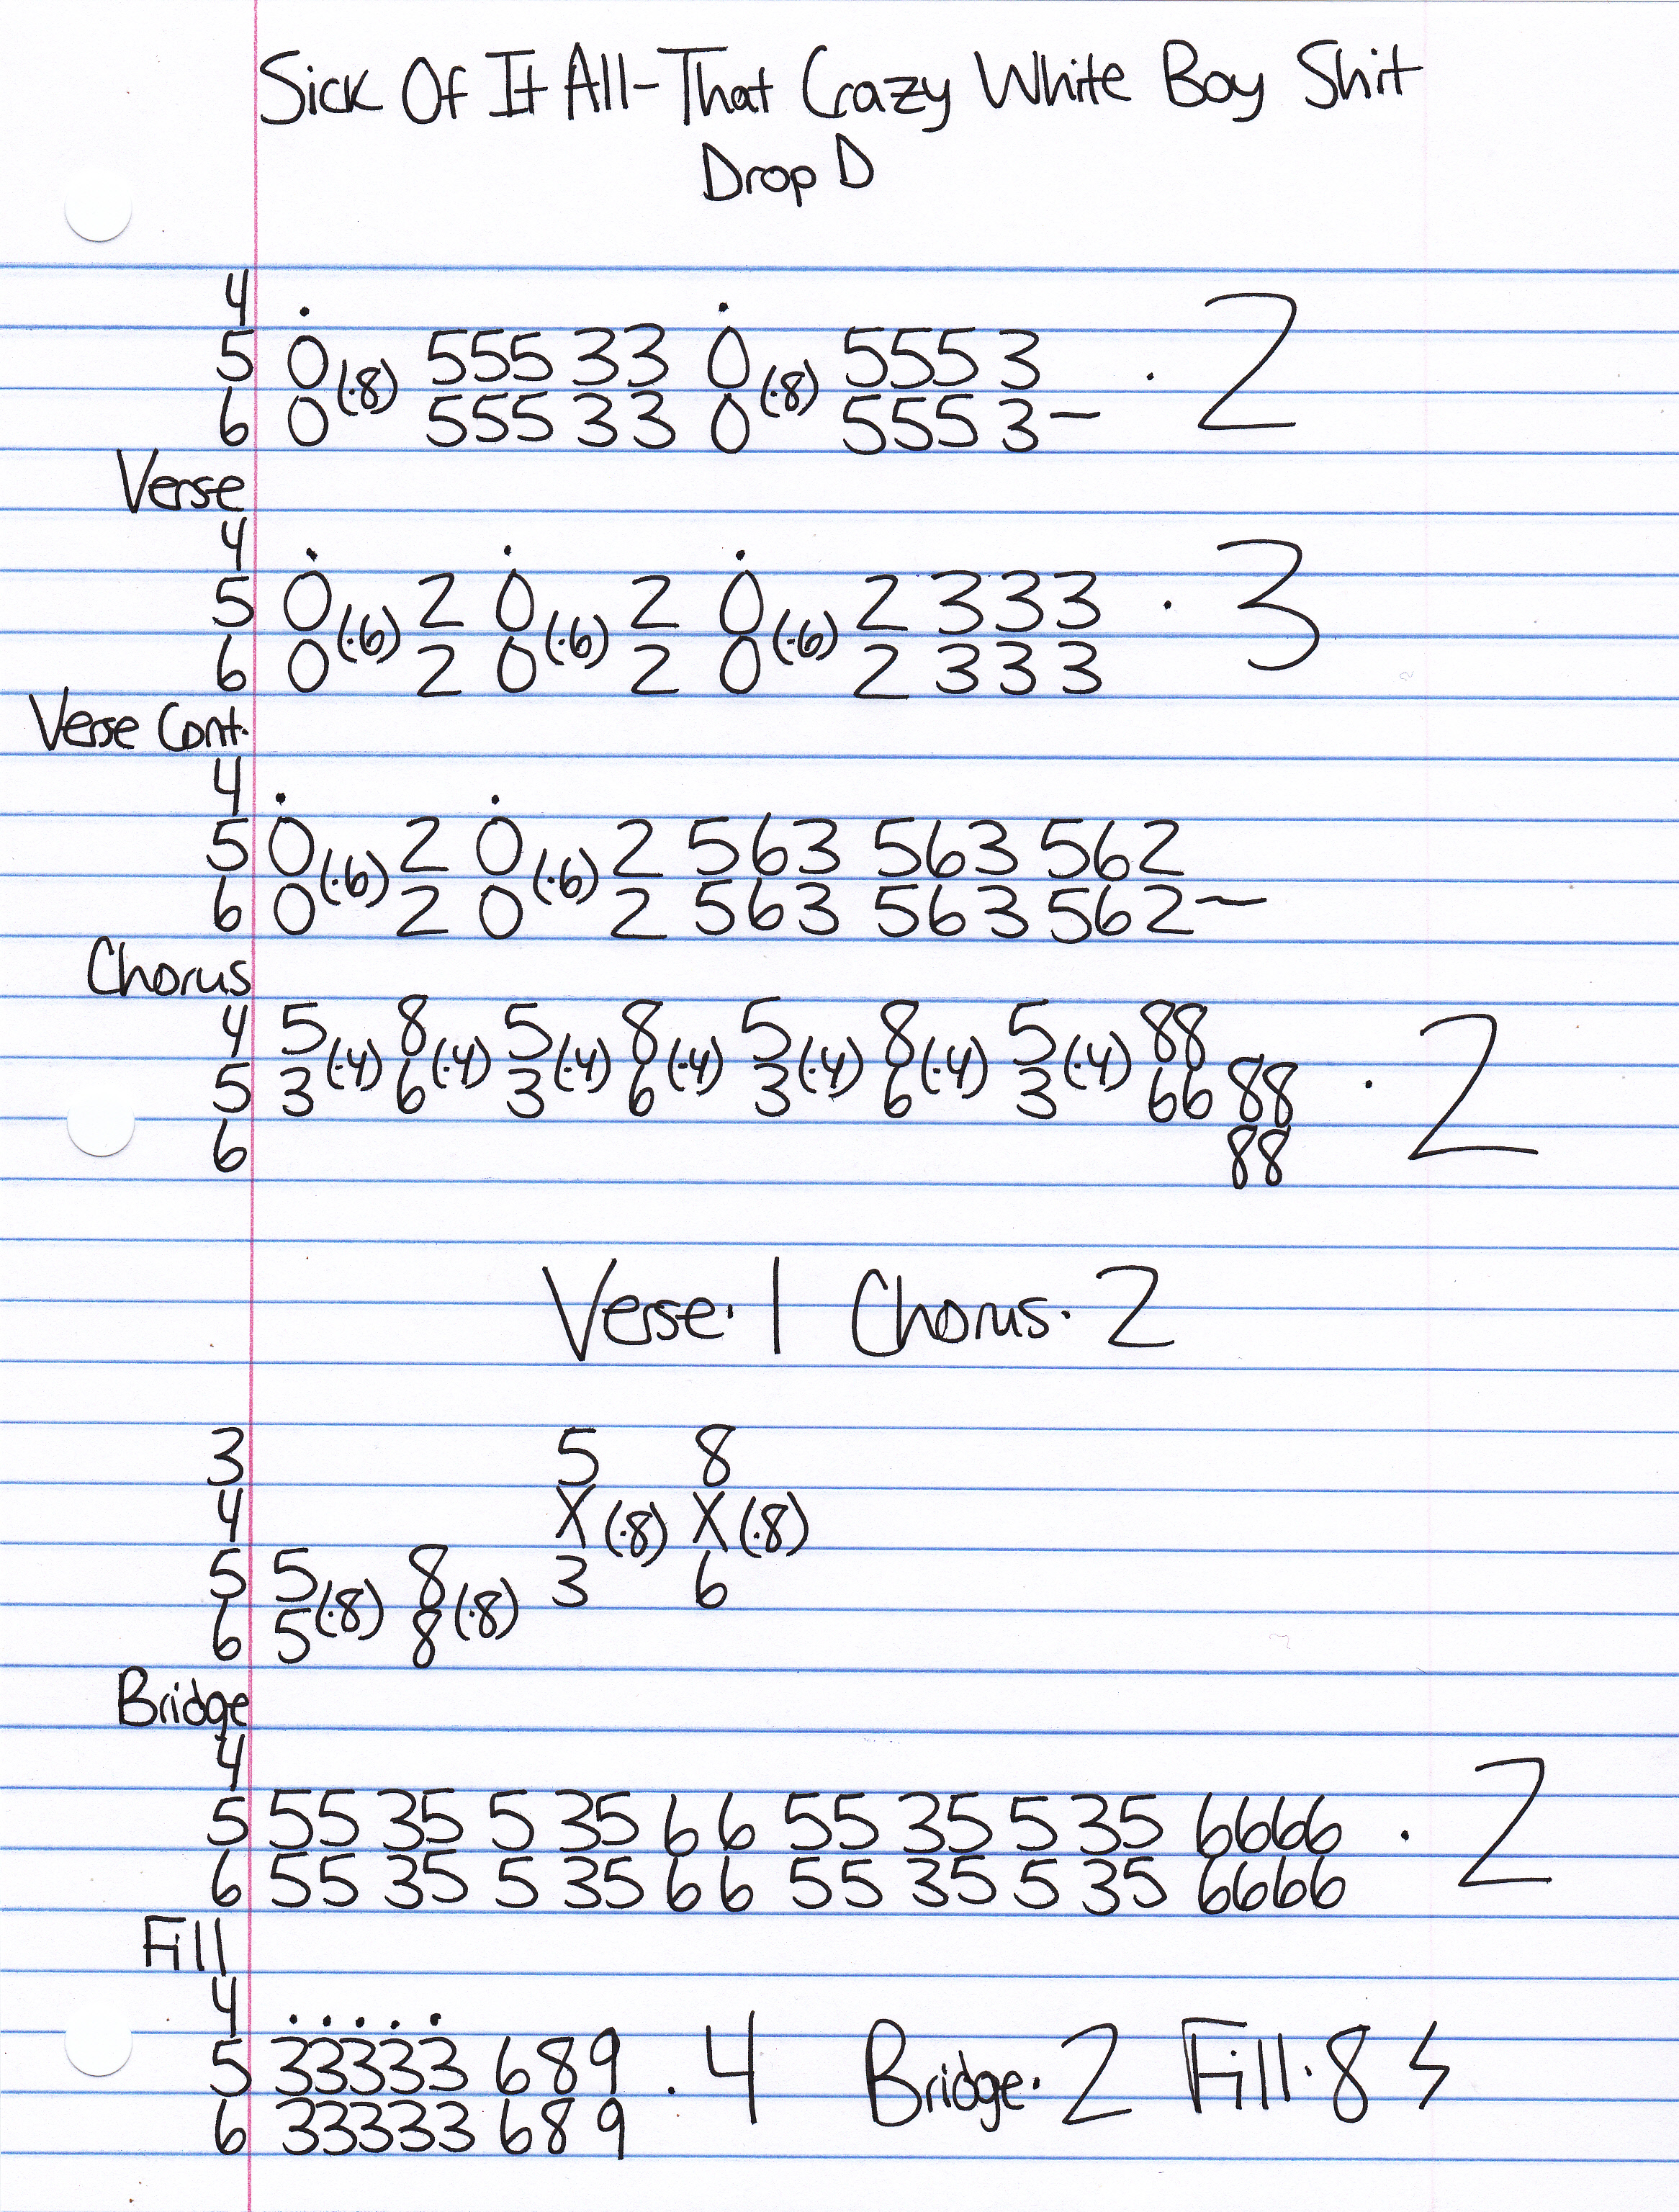 Sick Of It All-That Crazy White Boy Shit
Drop D
4
5 0 (·8) 555 33 0 (·8) 555 3 · 2
6 0 555 33 0 555 3~
Verse
4
5 0 (·6) 2 0 (·6) 2 0 (·6) 2 333 · 3
6 0 2 0 2 0 2 333
Verse Cont.
4
5 0 (·6) 2 0 (·6) 2 563 563 562
6 0 2 0 2 563 563 562~
Chorus
4 5 (·4) 8 (·4) 5 (·4) 8 (·4) 5 (·4) 8 (·4) 5 (·4) 88
5 3 6 3 6 3 6 3 66 88 · 2
6 88
Verse·1 Chorus·2
3 5 8
4 X (·8) X (·8)
5 5 (·8) 8 (·8) 3 6
6 5 8
Bridge
4
5 55 35 5 35 66 55 35 5 35 6666 · 2
6 55 35 5 35 66 55 35 5 35 6666
Fill
4
5 33333 689 · 4 Bridge·2 Fill·8
6 33333 689